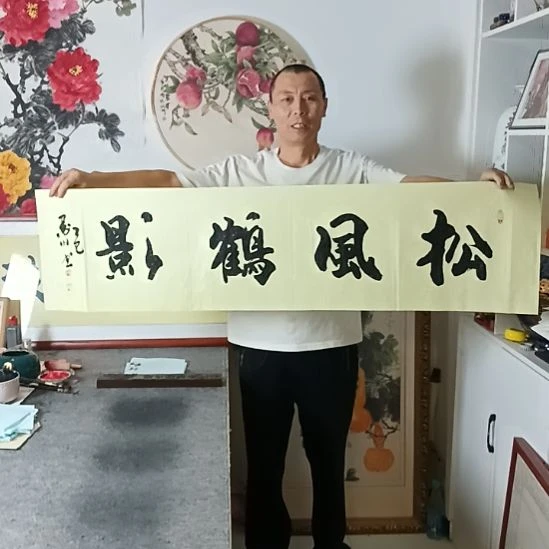 松風鶴影